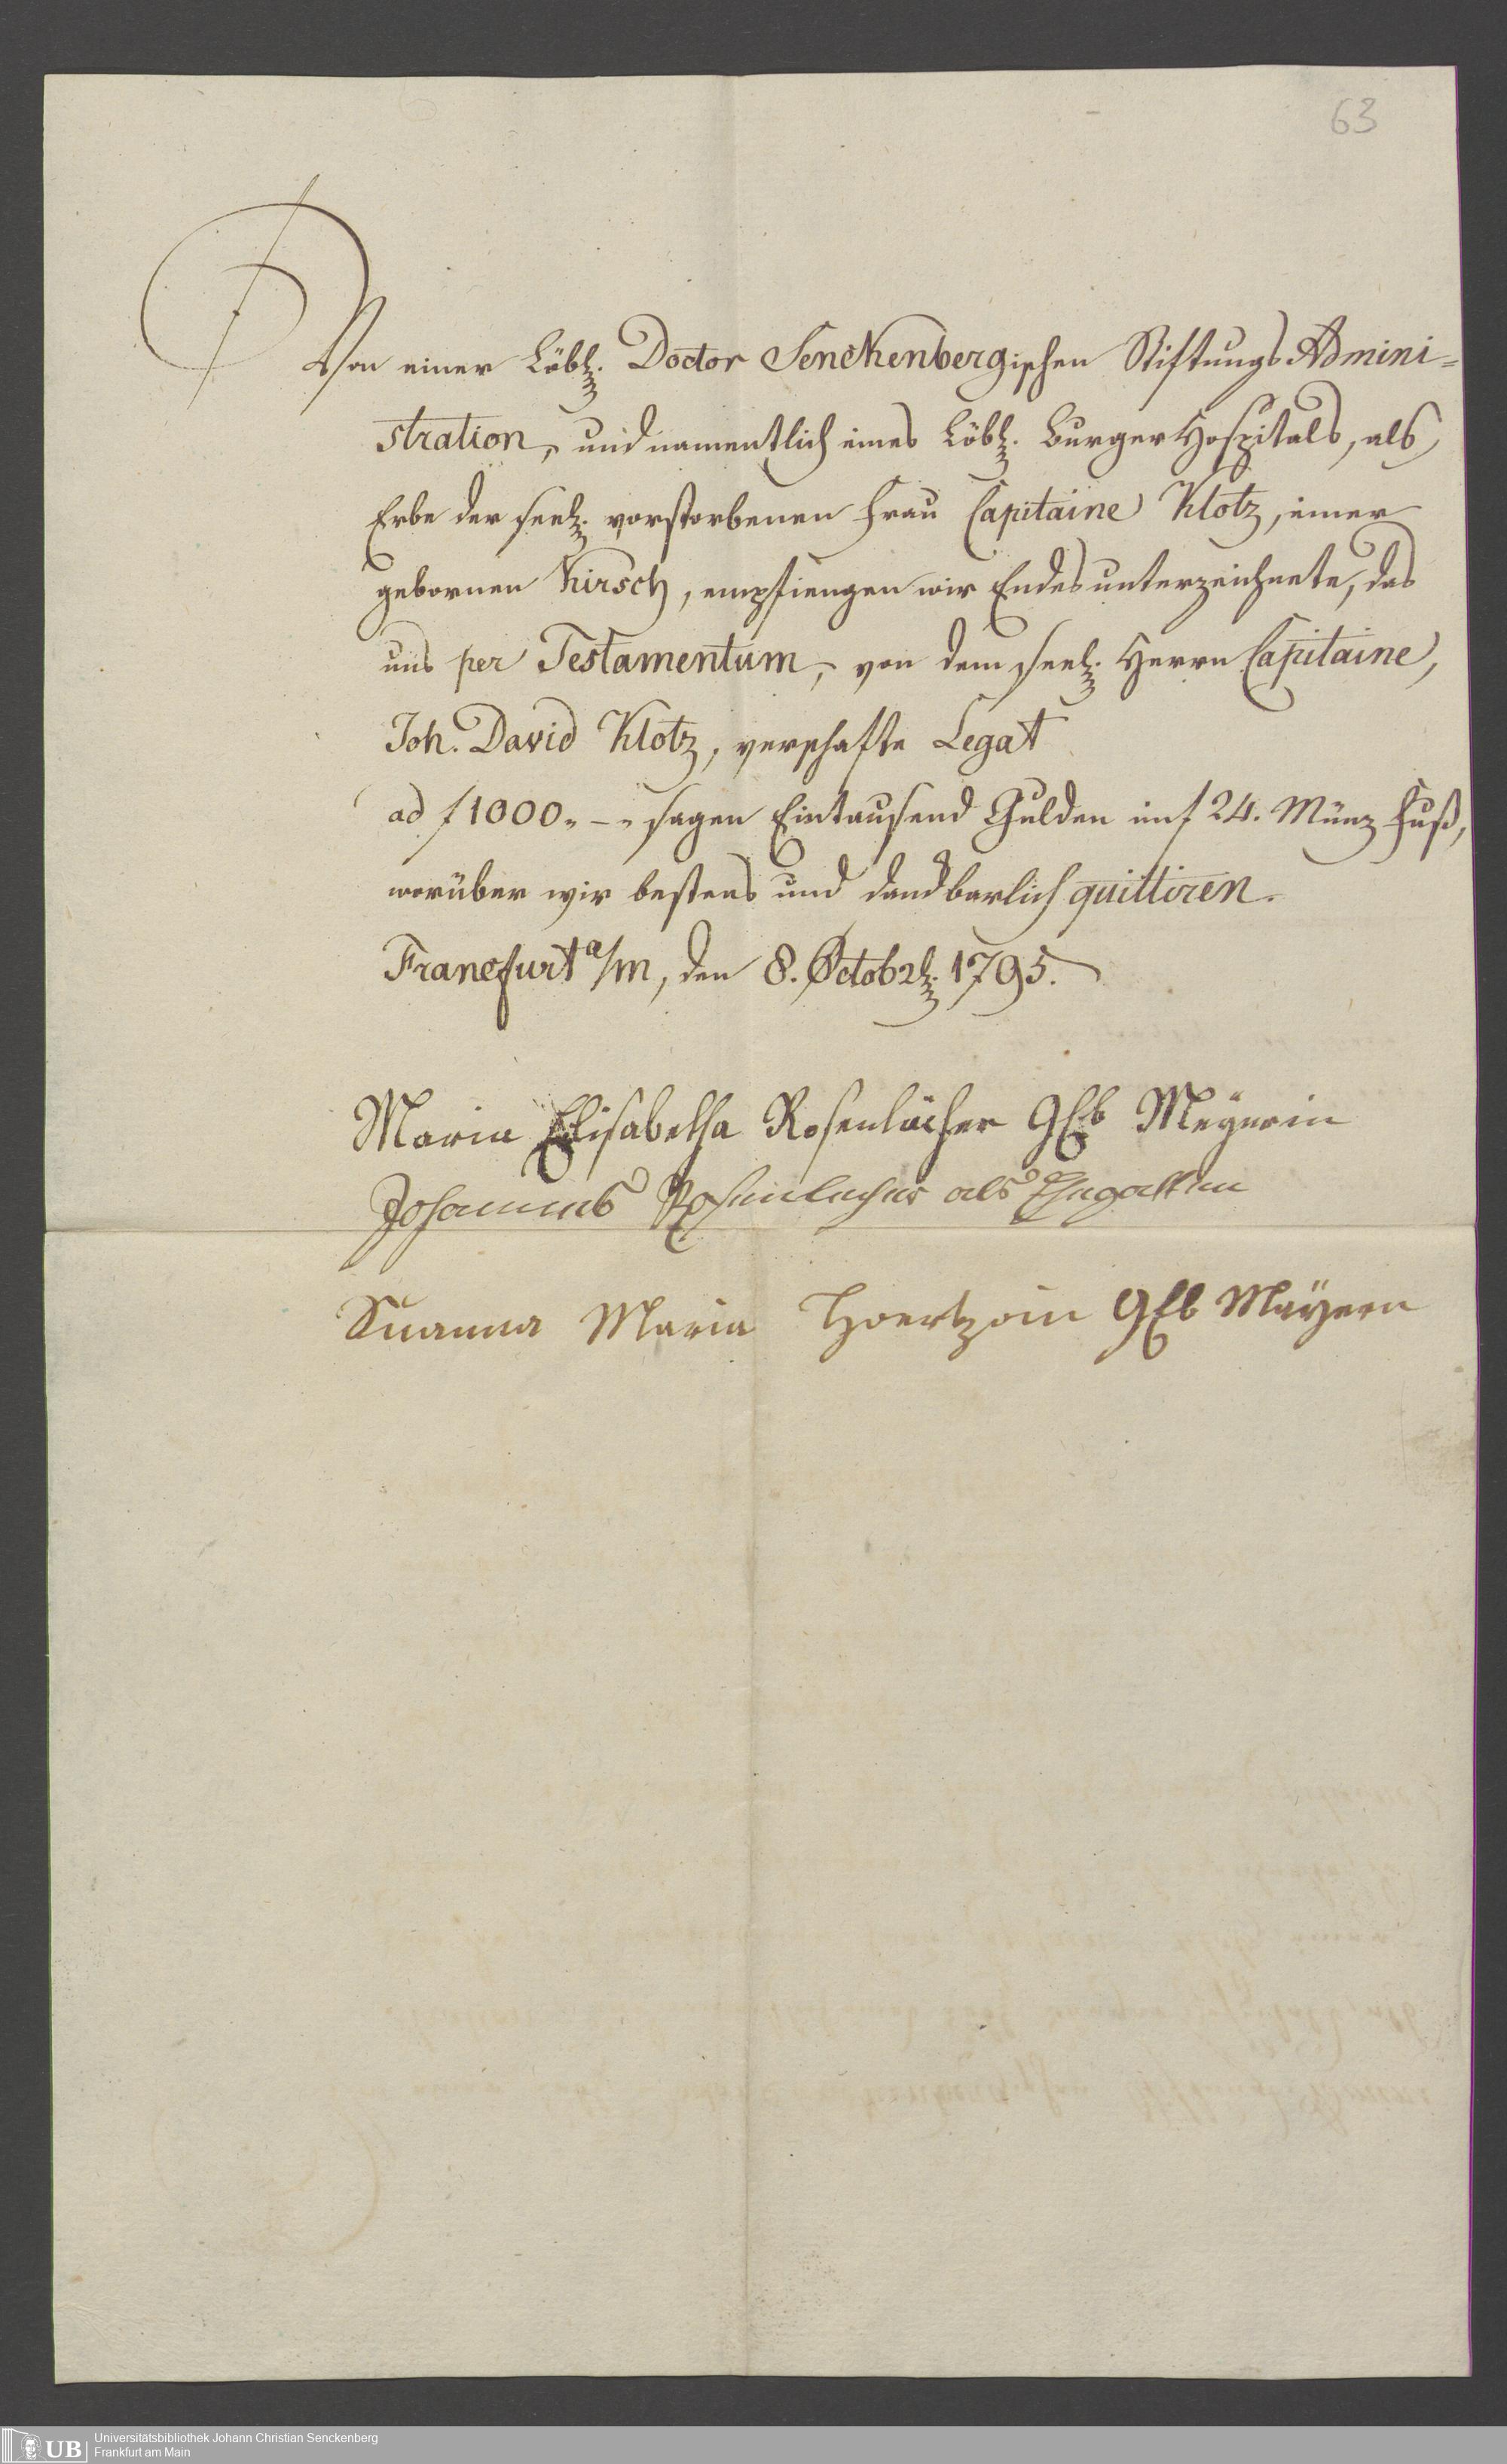 63
Von einer Löbl. Doctor Senckenbergischen Stiftungs Admini=
stration, und namentlich eines Löbl. Burger Hospitals, als
Erbe der seel. verstorbenen Frau Capitaine Klotz, einer
gebornen Kirsch, empfiengen wir Endes unterzeichnete, das
uns per Testamentum, von dem seel. Herrn Capitaine,
Joh. David Klotz, verschafte Legat
ad f 1000.-. sagen Eintausend Gulden im f 24. Münz Fuß,
worüber wir bestens und danckbarlich quittiren.
Francfurt a/m, den 8. Octobr. 1795.
Maria Elisabetha Rosenlächer geb Meÿerin
Johannes Rosenlecher als Ehegatten
Suanna Maria geb Maÿern
UB
Universitätsbibliothek Johann Christian Senckenberg
Frankfurt am Main